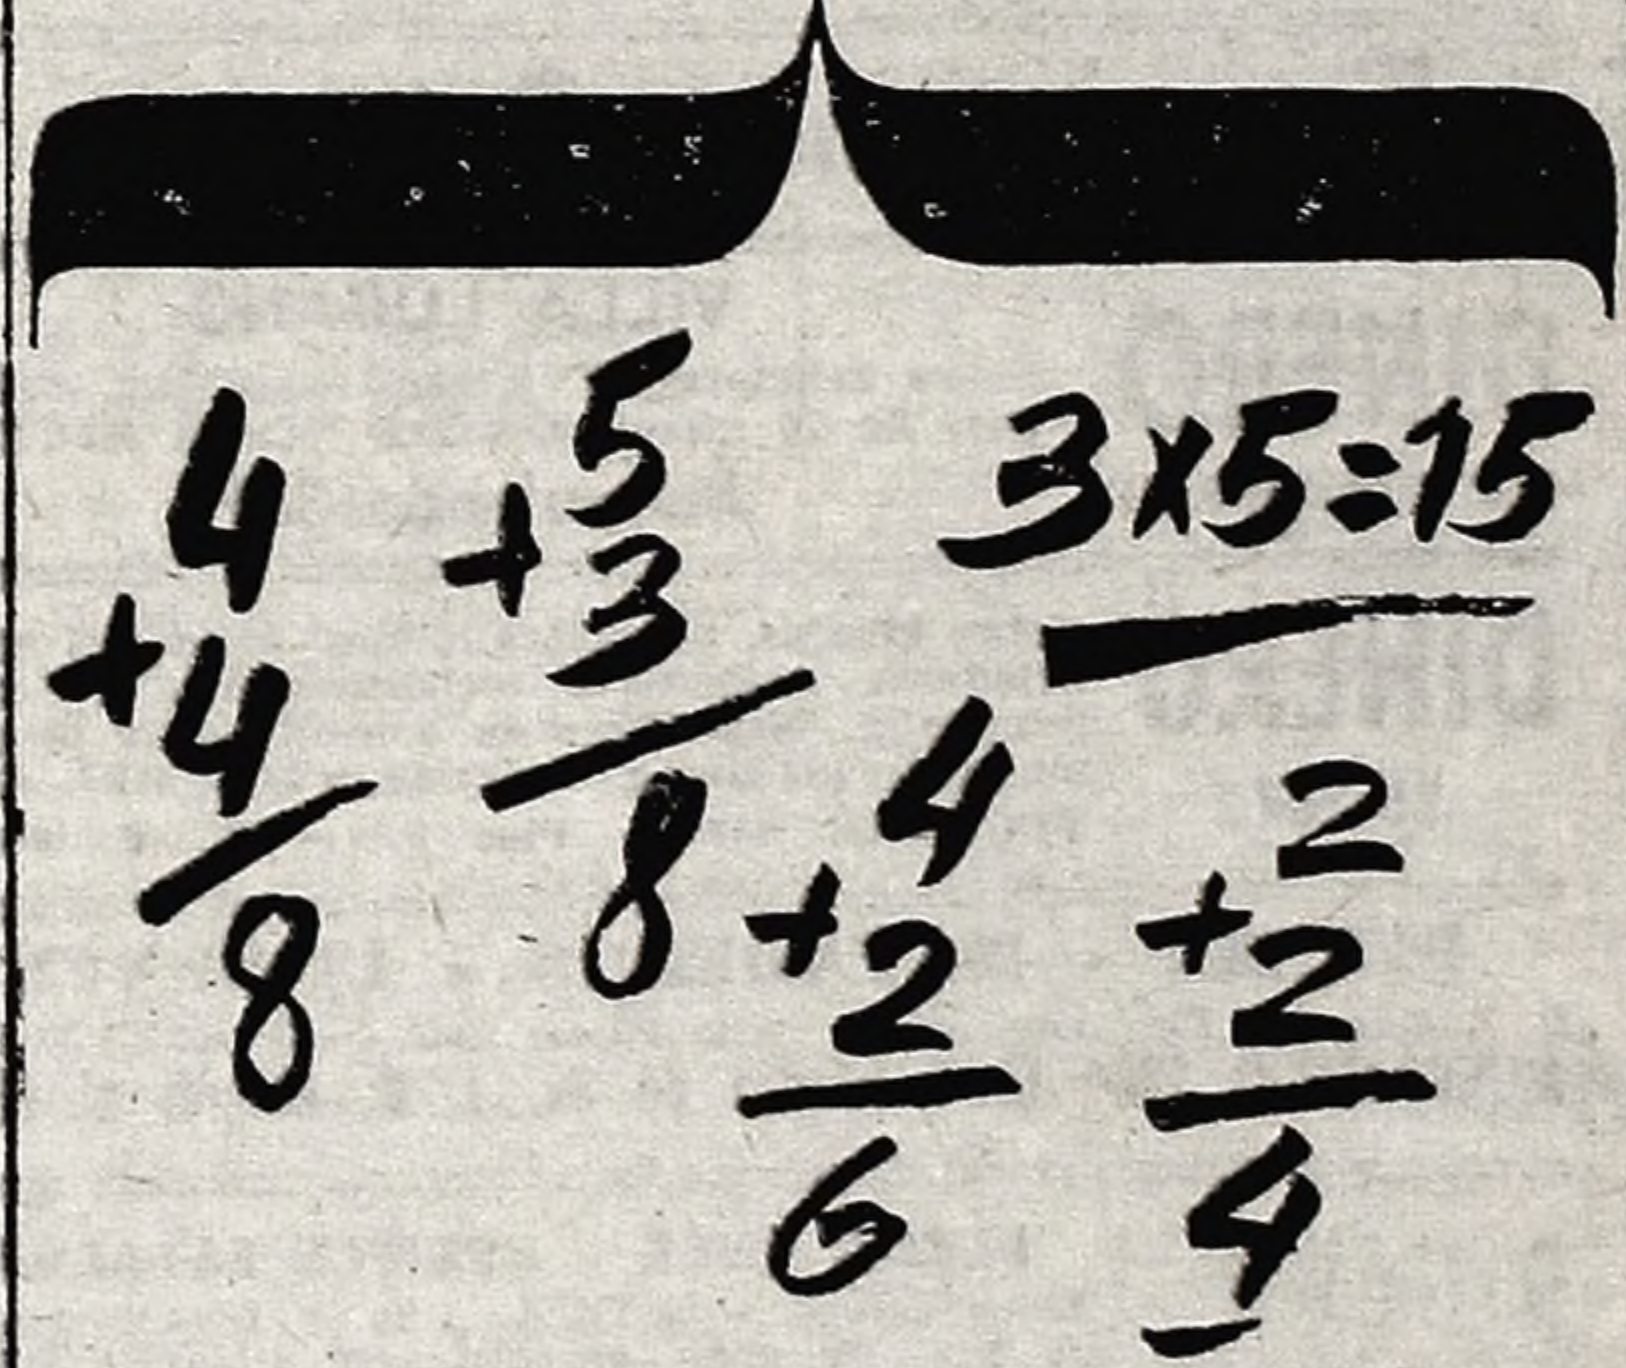 4
+4
8
5
+3
8
3x5=15
4
+2
6
2
+2
4